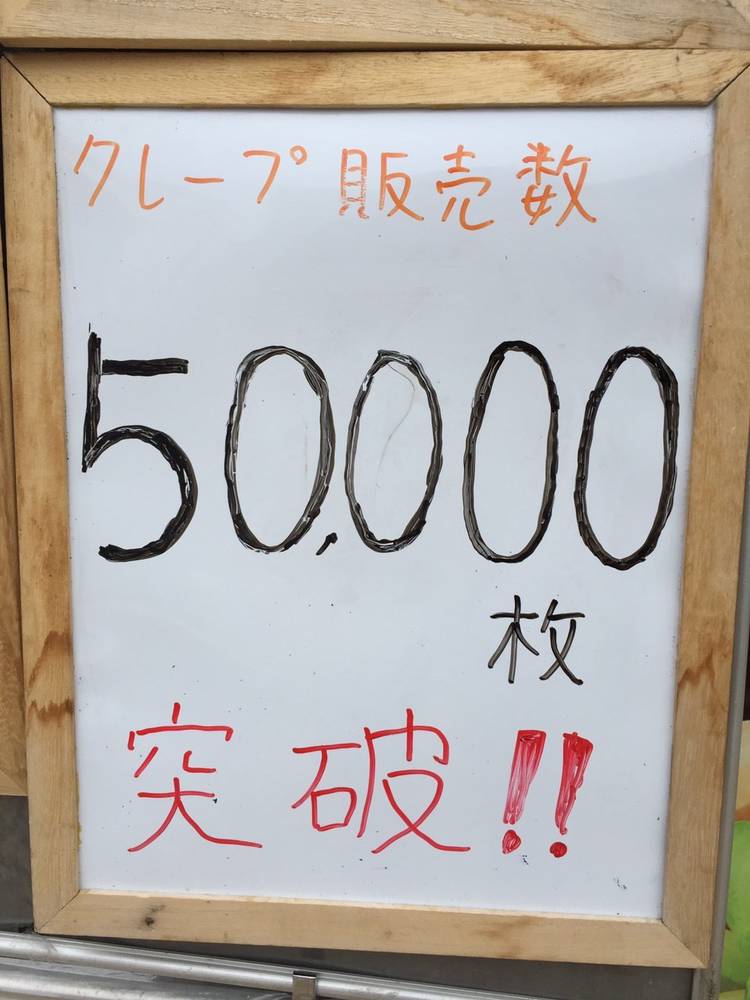 クレープ販売数
50,000
枚
突破!!